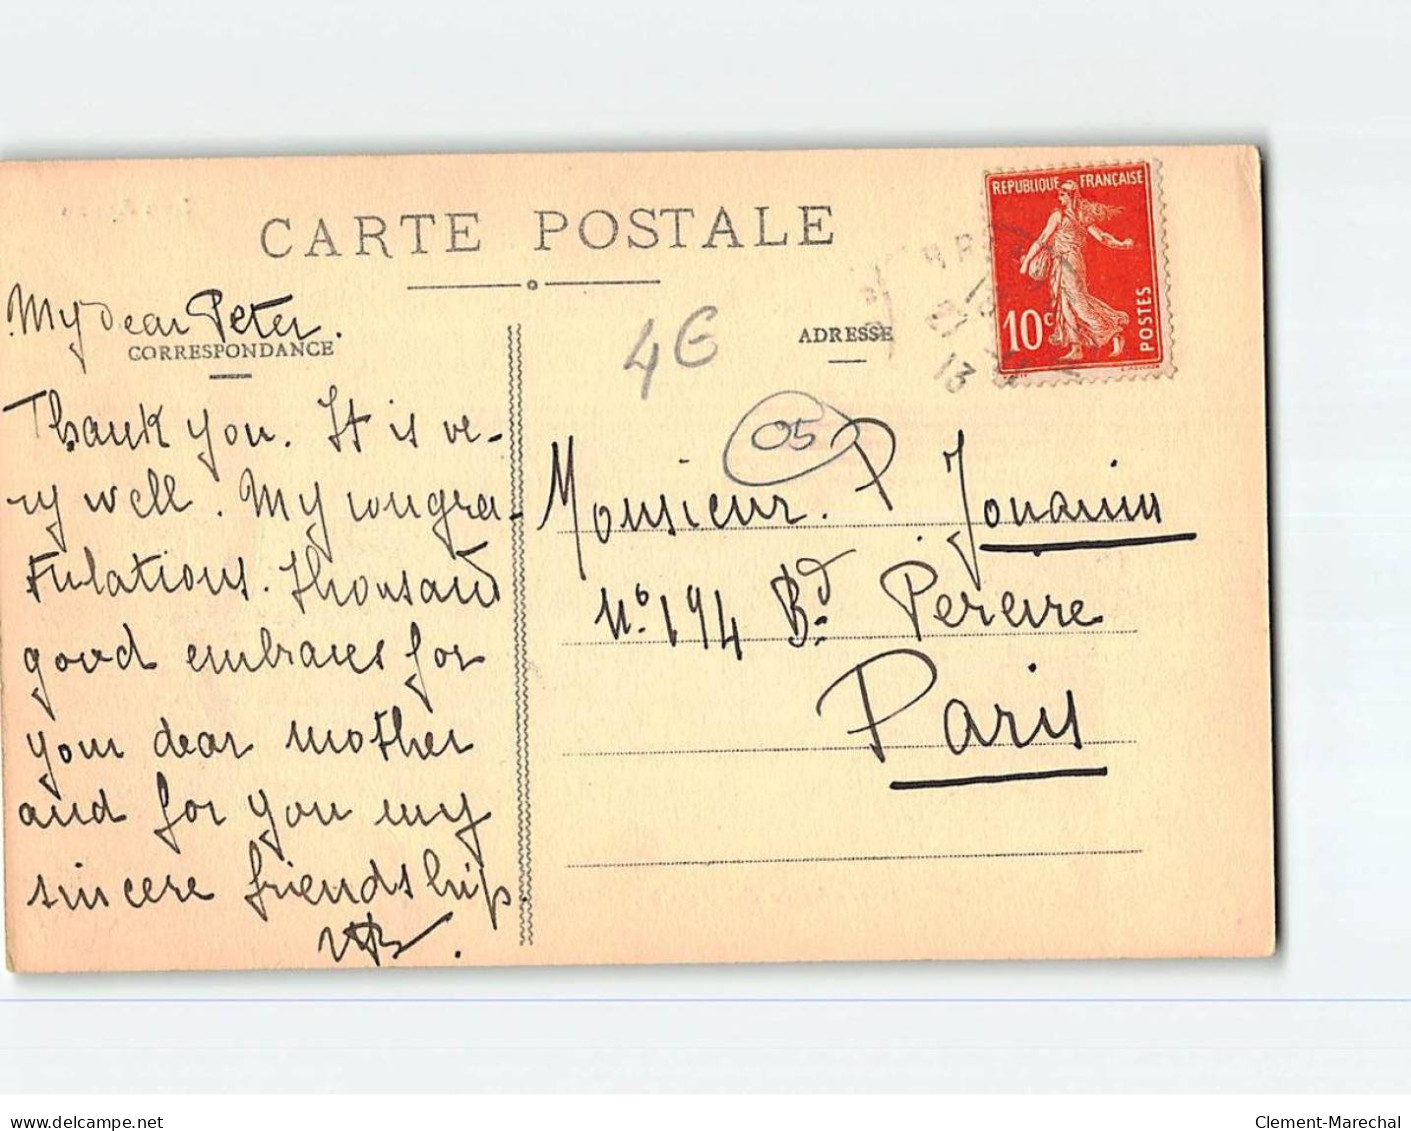 CARTE POSTALE
REPUBLIQUE FRANÇAISE
10c
POSTES
13
My dear Peter.
CORRESPONDANCE
Thank you. It is ve-
ry well. My congra-
tulations. Thousand
good embraces for
your dear mother
and for you my
sincere friendship.
4€
ADRESSE
05
Monsieur. P. Jouanin
N° 194 Bd Pereire
Paris
delcampe.net
Clement-Marechal